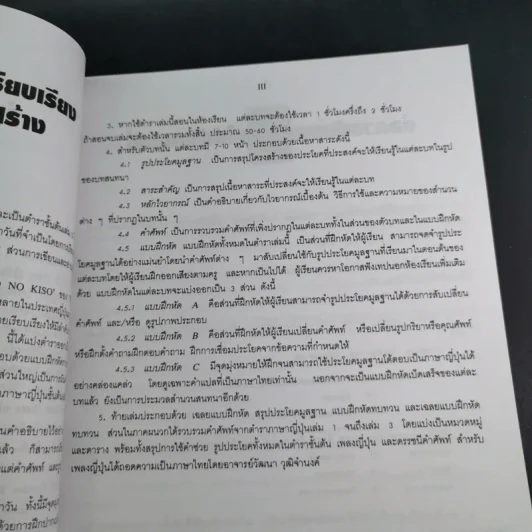 รียบเรียง
สร้าง
III
3. หากใช้ตำราเล่มนี้สอนในห้องเรียน แต่ละบทจะต้องใช้เวลา 1 ชั่วโมงครึ่งถึง 2 ชั่วโมง
ถ้าสอนจบเล่มจะต้องใช้เวลารวมทั้งสิ้น ประมาณ 50-60 ชั่วโมง
4. สำหรับตัวบทนั้น แต่ละบทมี 7-10 หน้า ประกอบด้วยเนื้อหาสาระดังนี้
4.1 รูปประโยคมูลฐาน เป็นการสรุปโครงสร้างของประโยคที่ประสงค์จะให้เรียนรู้ในแต่ละบทในรูป
ของบทสนทนา
4.2 สาระสำคัญ เป็นการสรุปเนื้อหาสาระที่ประสงค์จะให้เรียนรู้ในแต่ละบท
4.3 หลักไวยากรณ์ เป็นคำอธิบายเกี่ยวกับไวยากรณ์เบื้องต้น วิธีการใช้และความหมายของสำนวน
ต่าง ๆ ที่ปรากฏในบทนั้น ๆ
4.4 คำศัพท์ เป็นการรวบรวมคำศัพท์ที่เพิ่งปรากฏในแต่ละบททั้งในส่วนของตัวบทและในแบบฝึกหัด
4.5 แบบฝึกหัด แบบฝึกหัดทั้งหมดในตำราเล่มนี้ เป็นส่วนที่ฝึกหัดให้ผู้เรียน สามารถจดจำรูปประ
โยคมูลฐานได้อย่างแม่นยำโดยนำคำศัพท์ต่าง ๆ มาสับเปลี่ยนใช้กับรูปประโยคมูลฐานที่เรียนมาในตอนต้นของ
แต่ละบทโดยให้ผู้เรียนฝึกออกเสียงตามครู และหากเป็นไปได้ ผู้เรียนควรหาโอกาสฟังเทปนอกห้องเรียนเพิ่มเติม
ด้วย แบบฝึกหัดในแต่ละบทจะแบ่งออกเป็น 3 ส่วน ดังนี้
4.5.1 แบบฝึกหัด A คือส่วนที่ฝึกให้ผู้เรียนสามารถจำรูปประโยคมูลฐานได้ด้วยการสับเปลี่ยน
คำศัพท์ และ/หรือ ดูรูปภาพประกอบ
4.5.2 แบบฝึกหัด B คือส่วนที่ฝึกหัดให้ผู้เรียนเปลี่ยนคำศัพท์ หรือเปลี่ยนรูปกริยาหรือคุณศัพท์
หรือฝึกตั้งคำถามฝึกตอบคำถาม ฝึกการเชื่อมประโยคจากข้อความที่กำหนดให้
4.5.3 แบบฝึกหัด C มีจุดมุ่งหมายให้ฝึกจนสามารถใช้ประโยคมูลฐานโต้ตอบเป็นภาษาญี่ปุ่นได้
อย่างคล่องแคล่ว โดยดูเฉพาะคำแปลที่เป็นภาษาไทยเท่านั้น นอกจากจะเป็นแบบฝึกหัดเบ็ดเสร็จของแต่ละ
บทแล้ว ยังเป็นการประมวลสำนวนสนทนาอีกด้วย
5. ท้ายเล่มประกอบด้วย เฉลยแบบฝึกหัด สรุปประโยคมูลฐาน แบบฝึกหัดทบทวน และเฉลยแบบฝึกหัด
ทบทวน ส่วนในภาคผนวกได้รวบรวมคำศัพท์จากตำราภาษาญี่ปุ่นเล่ม 1 จนถึงเล่ม 3 โดยแบ่งเป็นหมวดหมู่
และตาราง พร้อมทั้งสรุปการใช้คำช่วย รูปประโยคทั้งหมดในตำราชั้นต้น เพลงญี่ปุ่น และดรรชนีคำศัพท์ สำหรับ
เพลงญี่ปุ่นได้ถอดความเป็นภาษาไทยโดยอาจารย์วัฒนา วุฒิจำนงค์
จะเป็นตำราชั้นต้น
วันที่จำเป็นโดยการฝึ
ส่วนการเขียนและ
NO KISO'
หลายในประเทศญี่ปุ่น
นี้ได้แบ่งตำราออก
อบด้วยแบบฝึกหัด
ส่วนใหญ่เป็นการ
ภาษาญี่ปุ่นชั้นต้น
นคำอธิบายไว้อย่าง
แล้ว ก็สามารถ
แต่คำศัพท์ และรูป
าวัน ทั้งนี้มีจุดมุ่
ด้วยการฝึกปาก